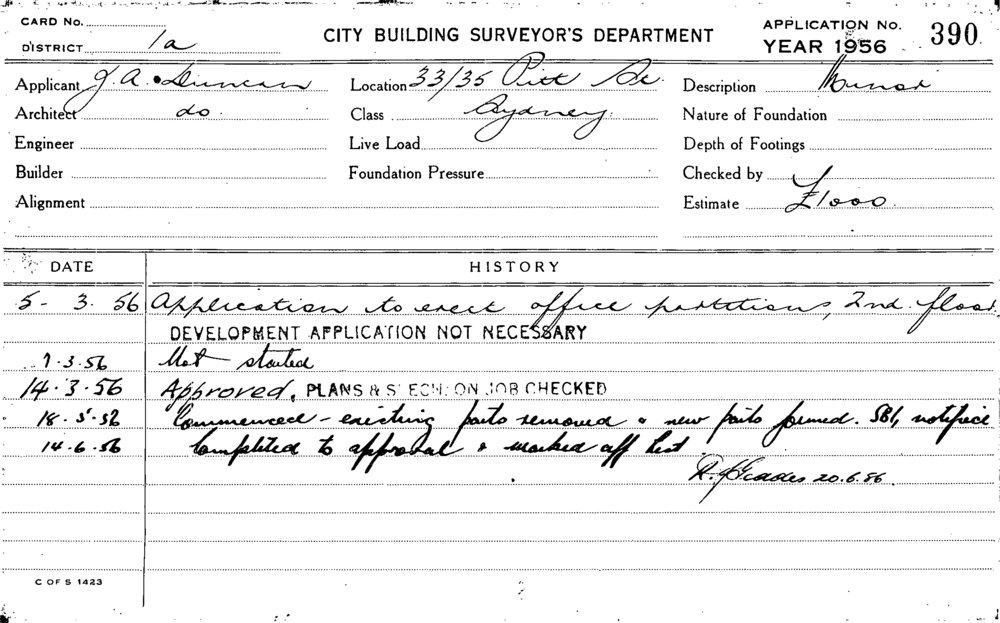 CARD No.
DISTRICT 1a
CITY BUILDING SURVEYOR'S DEPARTMENT
APPLICATION No. 390
YEAR 1956
Applicant J. A. Duncan Location 33/35 Pitt St Description Minor
Architect do. Class Sydney. Nature of Foundation
Engineer Live Load Depth of Footings
Builder Foundation Pressure Checked by
Alignment Estimate £1000.
DATE HISTORY
5-3.56 Application to erect office partitions, 2nd floor.
DEVELOPMENT APPLICATION NOT NECESSARY
7.3.56 Not started
14.3.56 Approved. PLANS & SPECN. ON JOB CHECKED
18.5.56 Commenced - existing parts removed & new parts formed. notified
14.6.56 Completed to approval & marked off list
20.6.56.
C OF S 1423